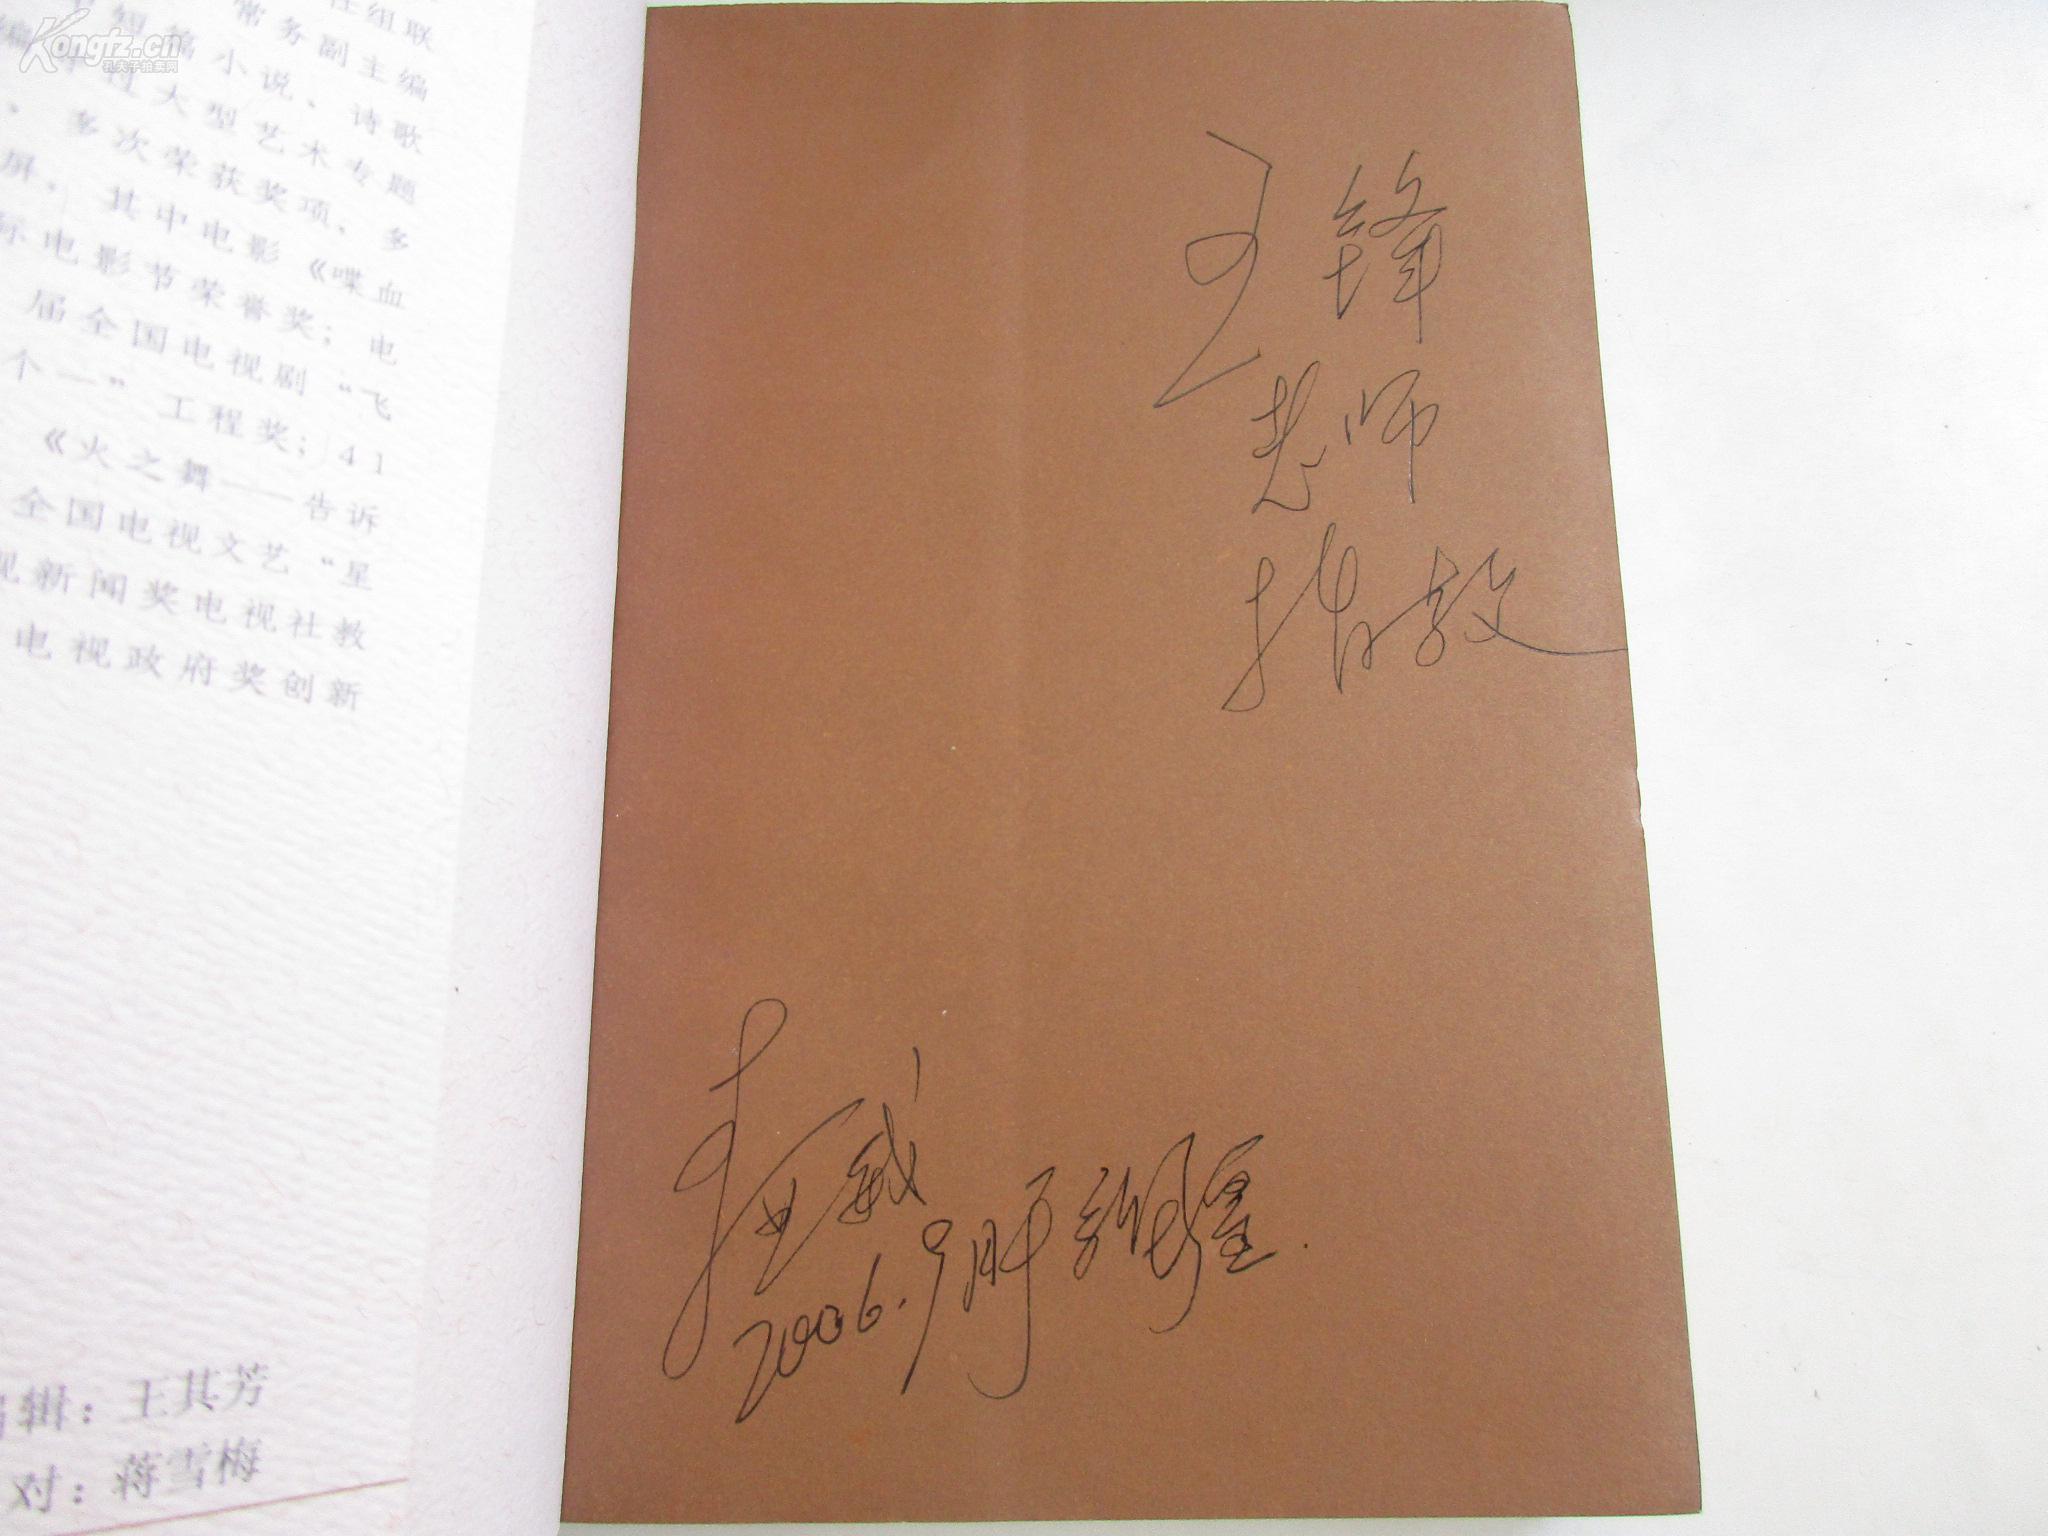 Kongfz.cn
孔夫子拍卖网
任组联
常务副主编
小说、诗歌
大型艺术专题
，多次荣获奖项、多
屏，其中电影《喋血
际电影节荣誉奖；电
届全国电视剧“飞
个一”工程奖；41
《火之舞——告诉
全国电视文艺“星
视新闻奖电视社教
电视政府奖创新
编辑：王其芳
对：蒋雪梅
锋
老师
指教
2006.9月于